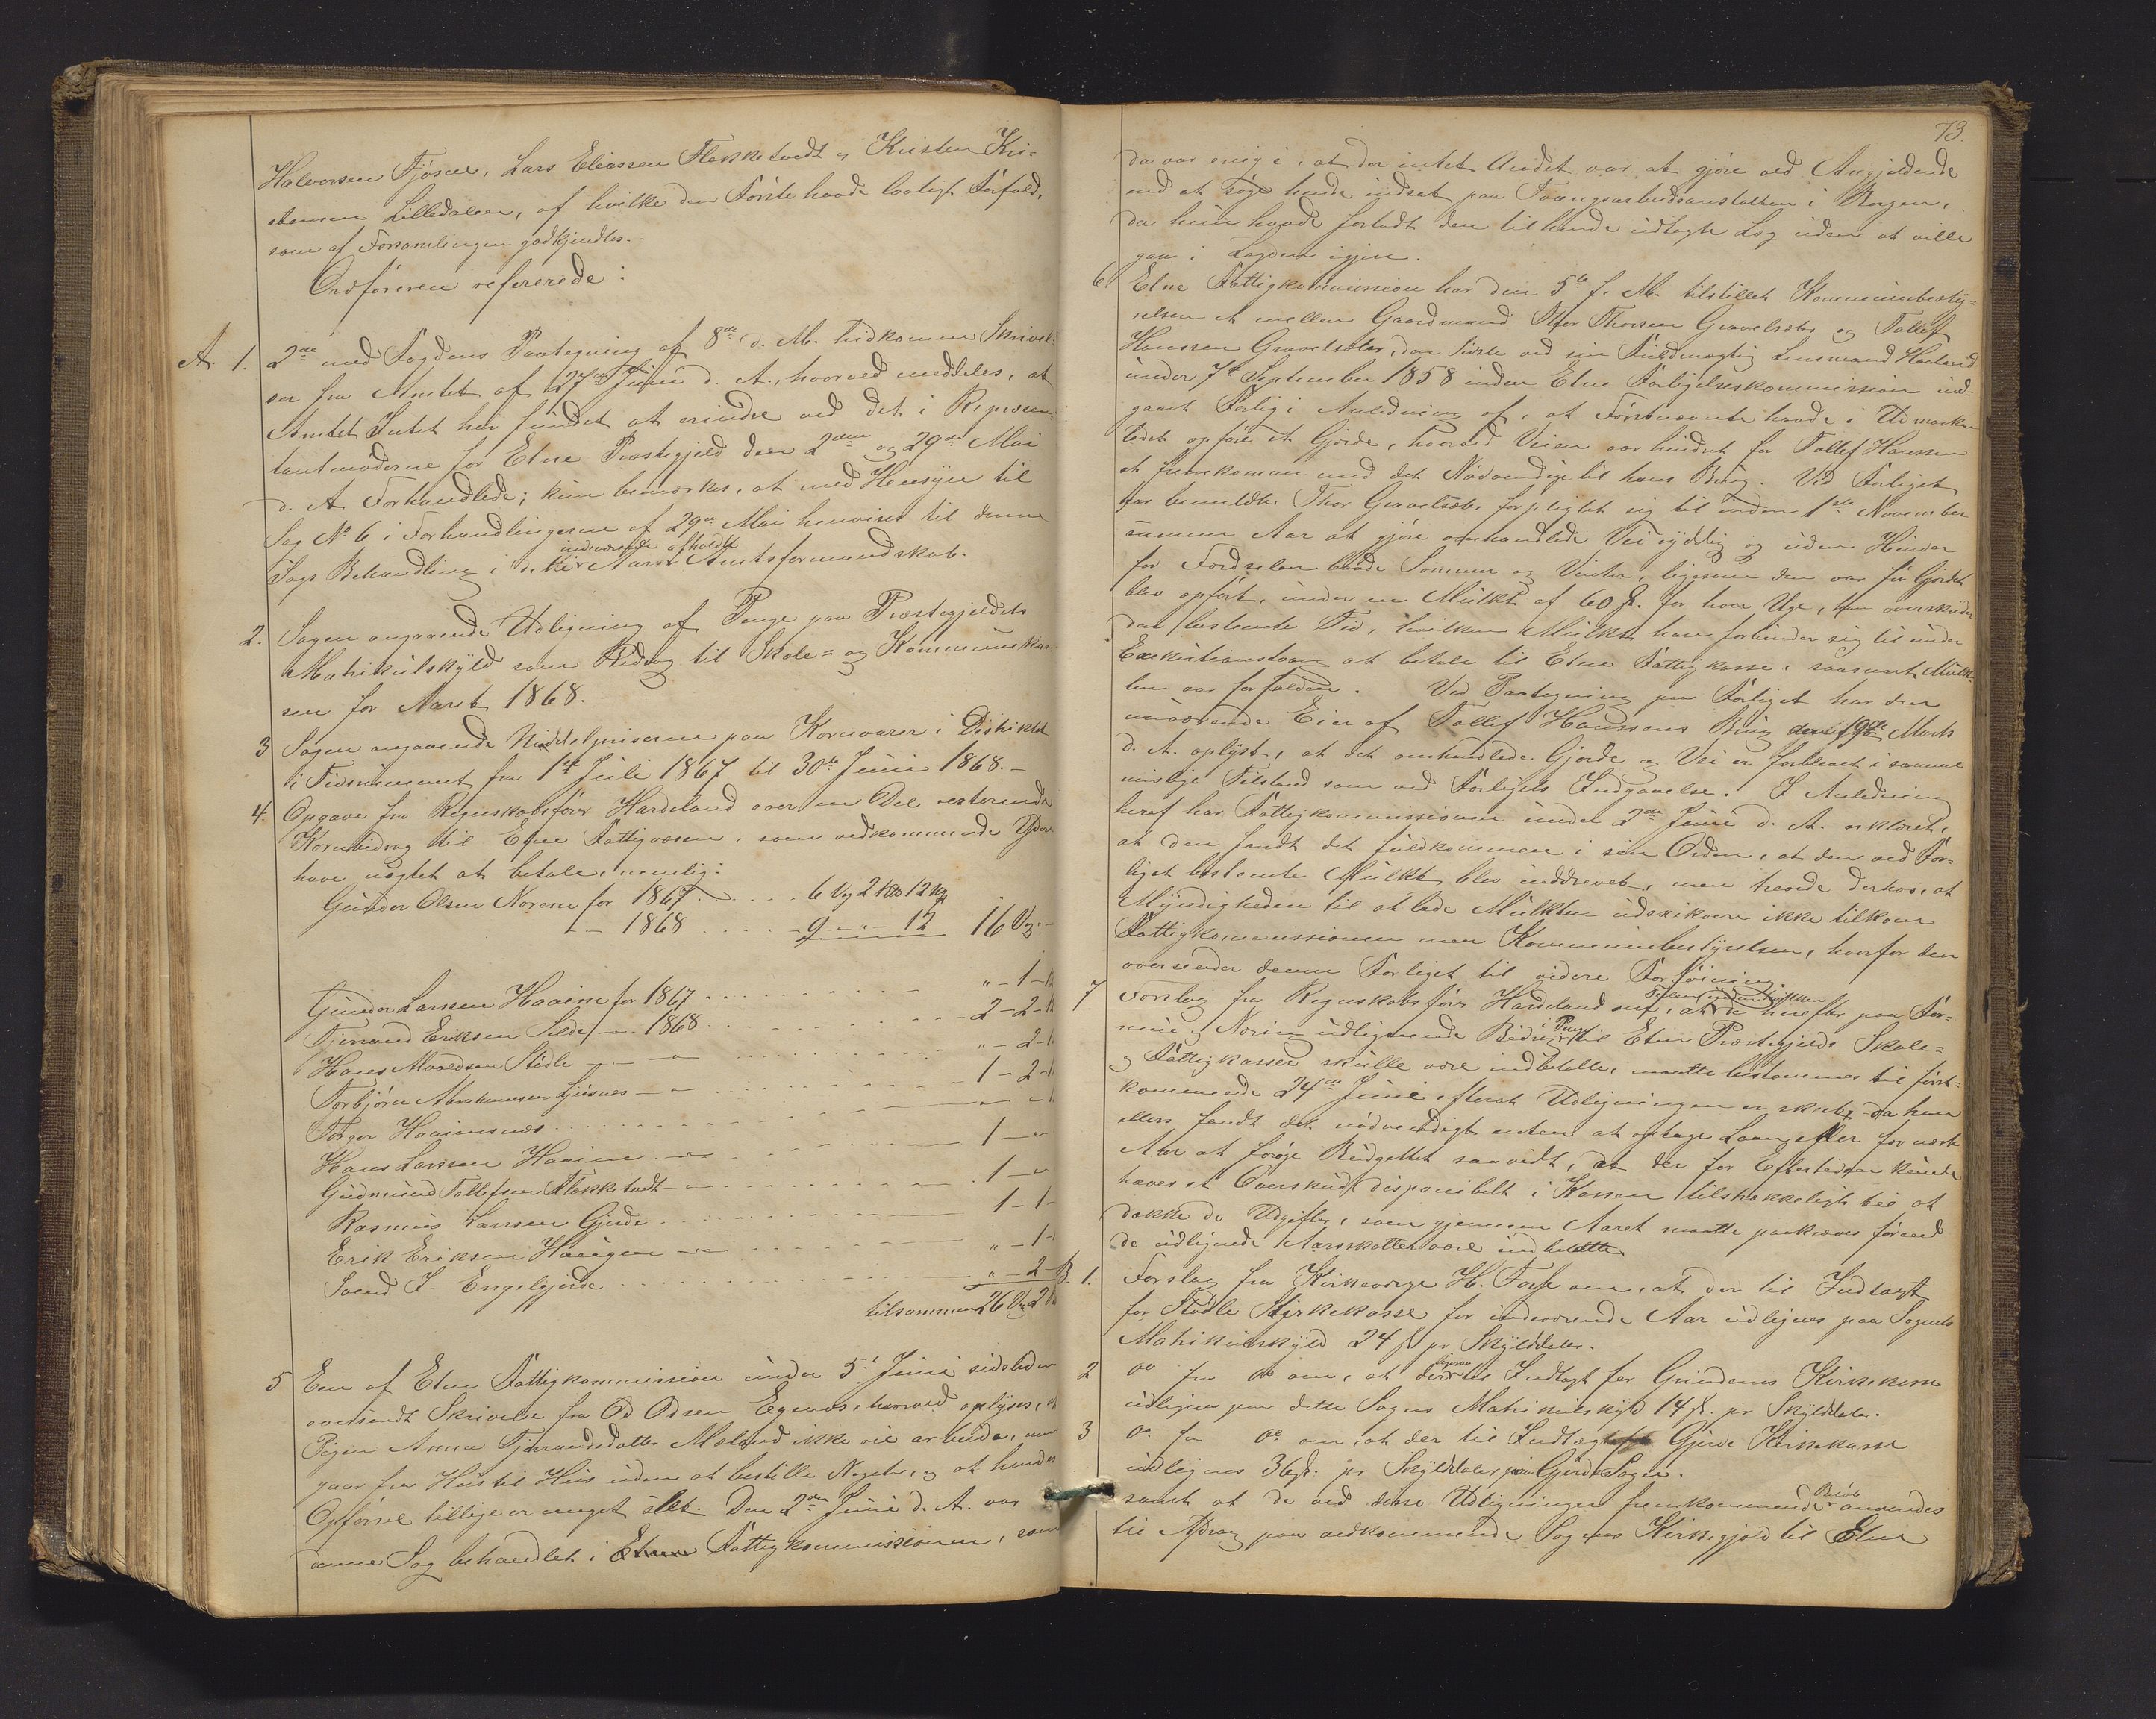 Halvorsen Fjøsne, Lars Eliassen Flekketvedt og Kristen Kri-
stensen Lilledalen, af hvilke den Første havde lovligt Forfald,
som af Forsamlingen godkjendtes.-
Ordføreren refererede:
A. 1. 2de med Fogdens Paategning af 8de d. M. hidkomne Skrivel-
ser fra Amtet af 27de Juni d. A., hvorved meddeles, at
Amtet Intet har fundet at erindre ved det i Repræsen-
tantmøderne for Etne Præstegjeld den 2den og 29de Mai
d. A. Forhandlede; kun bemærkes, at med Hensyn til
Sag No 6 i Forhandlingerne af 29de Mai henvises til denne
indeværende afholdte
Sags Behandling i dette Aars Amtsformandskab.
2. Sagen angaaende Udligning af Penge paa Præstegjeldets
Matrikulskyld som Bidrag til Skole- og Kommunekas-
sen for Aaret 1868.
3 Sagen angaaende Middelpriserne paa Kornvarer i Distriktet
i Tidsrummet fra 1ste Juli 1867 til 30te Juni 1868.-
4. Opgave fra Regnskabsfører Hardeland over en Del resterende
Kornbidrag til Etne Fattigvæsen, som vedkommende Ydere
have nægtet at betale, nemlig:
Gunder Olsen Norem for 1867 . . . . . 6 Vog 2 12
- 1868 . . . . . 9 - " - 12 16 Vog -
Gunder Larsen Haaim for 1867 . . . . . " - 1 -
Tjerand Eriksen Silde - 1868 . . . . . 2 - 2 -
Hans Stødle - " - . . . . . " - 2 -
Torbjørn Abrahamsen - " - . . . . . 1 - 2 -
Torger Haaimsnes . . . . .
Hans Larsen Haaim - " - . . . . . 1 - "
Gudmund Tollefsen Flekketvedt - " - . . . . . 1 - "
Rasmus Larsen Gjerde . . . . . 1 - 1 -
Erik Eriksen Haugen - " - . . . . . " - 1 -
Svend J. Engelsgjerde . . . . . " - 2 -
tilsammen 26 Vog 2
5 En af Etne Fattigkommission under 5te Juni sidstleden
oversendt Skrivelse fra Od Odsen Egenes, hvorved oplyses, at
Pigen Anna Tjerandsdatter Mæland ikke vil arbeide, men
gaar fra Hus til Hus uden at bestille Noget, og at hendes
Opførsel tillige er meget slet. Den 2den Juni d. A. var
denne Sag behandlet i Etne Fattigkommissionen, som
73.
da var enig i, at der intet Andet var at gjøre ved Angjeldende
end at søge hende indsat paa Tvangsarbeidsanstalten i Bergen,
da hun havde forladt den til hende udlagte Lægd uden at ville
gaa i Lægden igjen.
6 Etne Fattigkommission har den 5te f. M. tilstillet Kommunebesty-
relsen et mellem Gaardmand Thor Thorsen Gravelsæter og Tollef
Hanssen Gravelsæter, den Sidste ved sin Fuldmægtig Lensmand Haaland
under 7de September 1858 inden Etne Forligelseskommission ind-
gaaet Forlig i Anledning af, at Førstnævnte havde i Udmarken
ladet opføre et Gjerde, hvorved Veien var hindret for Tollef Hanssen
at fremkomme med det Nødvendige til hans Brug. Ved Forliget
har bemeldte Thor Gravelsæter forpligtet sig til inden 1ste November
samme Aar at gjøre omhandlede Vei ryddig og uden Hinder
for Færdselen baade Sommer og Vinter, ligesom den var før Gjerdet
blev opført, under en Mulkt af 60 ß. for hver Uge, han overskrider
den bestemte Tid, hvilken Mulkt han forbinder sig til under
Exekutionstvang at betale til Etne Fattigkasse, saasnart Mulk-
ten var forfalden. Ved Paategning paa Forliget har den
nuværende Eier af Tollef Hanssens Brug den 19de Marts
d. A. oplyst, at det omhandlede Gjerde og Vei er forbleven i samme
mislige Tilstand som ved Forligets Indgaaelse. I Anledning
heraf har Fattigkommissionen under 2den Juni d. A. erklæret,
at den fandt det fuldkommen i sin Orden, at den ved For-
liget bestemte Mulkt blev inddrevet, men troede derhos, at
Myndigheden til at lade Mulkten udsøke ikke tilkom
Fattigkommissionen men Kommunebestyrelsen, hvorfor den
oversender denne Forliget til videre Forføining.
7 Forslag fra Regnskabsfører Hardeland om, at de herefter paa For-
mue og Næring udlignende Bidrag i Penge til Etne Præstegjelds Skole-
og Fattigkasser skulle være indbetalte, maatte bestemmes til først-
kommende 24de Juni efterat Udligningen er skeet, da han
ellers fandt det nødvendigt enten at optage Laan eller for næste
Aar at forøge Budgettet saavidt, at der for Eftertiden kunde
haves et Overskud disponibelt i Kassen tilstrækkeligt til at
dække de Udgifter, som gjennem Aaret maatte paakræves førend
de udlignede Aarsskatter vare indbetalte.
B. 1. Forslag fra Kirkeværge H. Torske om, at der til Indtægt
for Stødle Kirkekasse for indeværende Aar udlignes paa Sognets
Matrikulskyld 24 ß pr. Skylddaler.
2 Do fra Do om, at der ligesaa til Indtægt for Grindenes Kirkekasse
udlignes paa dette Sogns Matrikulskyld 14 ß. pr Skylddaler.
3 Do fra Do om, at der til Indtægt for Gjerde Kirkekasse
udlignes 36 ß. pr Skylddaler paa Gjerde Sogn.
samt at de ved disse Udligninger fremkommende Beløb anvendes
til Afdrag paa vedkommende Sognes Kirkegjæld til Etne